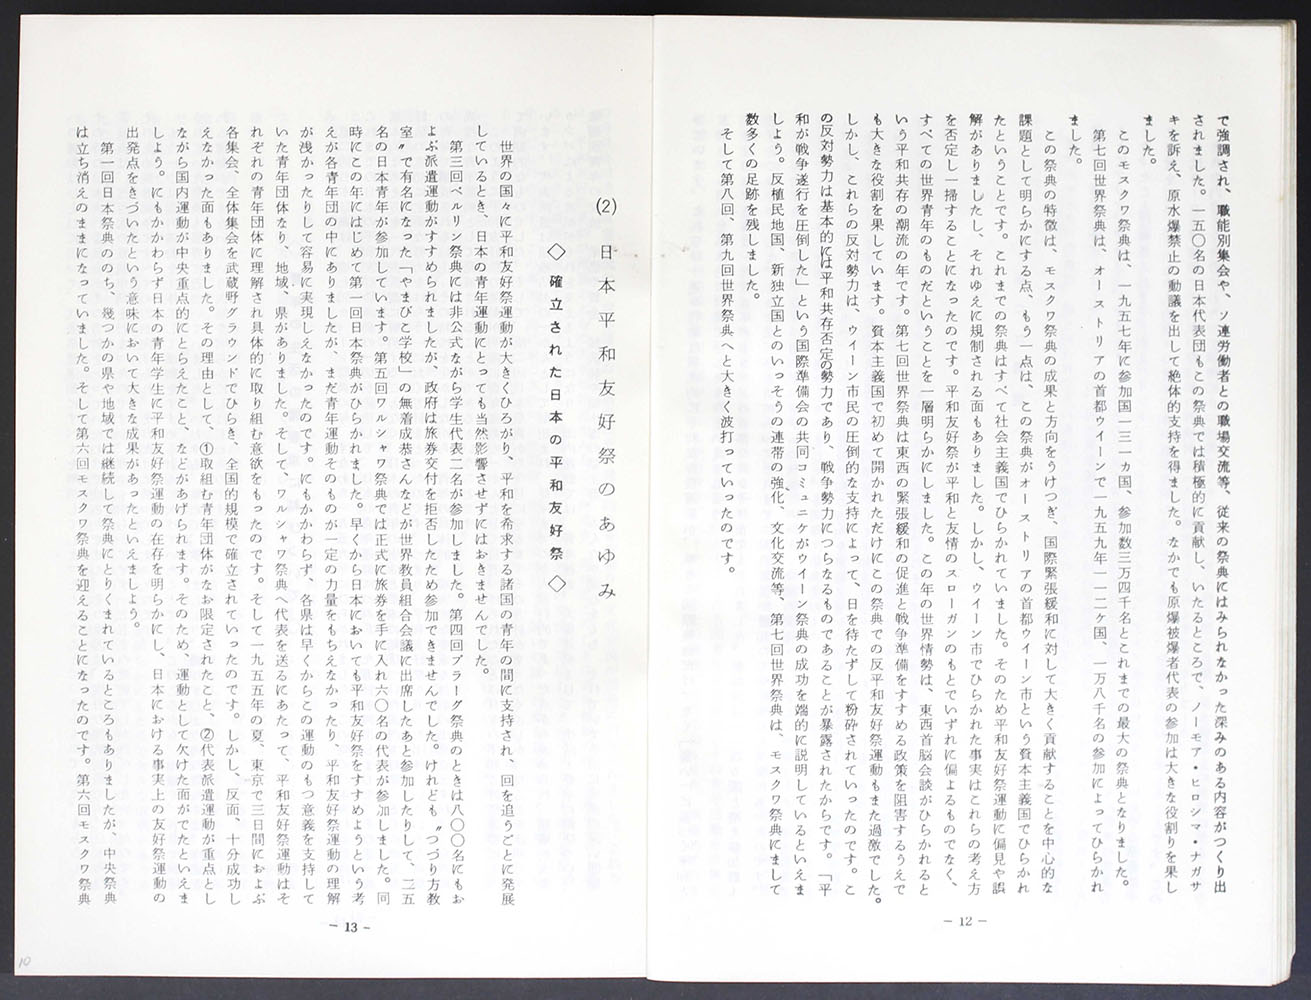 で強調され、職能別集会や、ソ連労働者との職場交流等、従来の祭典にはみられなかった深みのある内容がつくり出
されました。一五〇名の日本代表団もこの祭典では積極的に貢献し、いたるところで、ノーモア・ヒロシマ・ナガサ
キを訴え、原水爆禁止の動議を出して絶体的支持を得ました。なかでも原爆被爆者代表の参加は大きな役割りを果し
ました。
このモスクワ祭典は、一九五七年に参加国一三一ヵ国、参加数三万四千名とこれまでの最大の祭典となりました。
第七回世界祭典は、オーストリアの首都ウイーンで一九五九年一一二ヶ国、一万八千名の参加によってひらかれ
ました。
この祭典の特徴は、モスクワ祭典の成果と方向をうけつぎ、国際緊張緩和に対して大きく貢献することを中心的な
課題として明らかにする点、もう一点は、この祭典がオーストリアの首都ウイーン市という資本主義国でひらかれ
たということです。これまでの祭典はすべて社会主義国でひらかれていました。そのため平和友好祭運動に偏見や誤
解がありましたし、それゆえに規制される面もありました。しかし、ウイーン市でひらかれた事実はこれらの考え方
を否定し一掃することになったのです。平和友好祭が平和と友情のスローガンのもとでいずれに偏よるものでなく、
すべての世界青年のものだということを一層明らかにしました。この年の世界情勢は、東西首脳会談がひらかれると
いう平和共存の潮流の年です。第七回世界祭典は東西の緊張緩和の促進と戦争準備をすすめる政策を阻害するうえで
も大きな役割を果しています。資本主義国で初めて開かれただけにこの祭典での反平和友好祭運動もまた過激でした。
しかし、これらの反対勢力は、ウィーン市民の圧倒的な支持によって、日を待たずして粉砕されていったのです。こ
の反対勢力は基本的には平和共存否定の勢力であり、戦争勢力につらなるものであることが暴露されたからです。「平
和が戦争遂行を圧倒した」という国際準備会の共同コミュニケがウイーン祭典の成功を端的に説明しているといえま
しょう。反植民地国、新独立国とのいっそうの連帯の強化、文化交流等、第七回世界祭典は、モスクワ祭典にまして
数多くの足跡を残しました。
そして第八回、第九回世界祭典へと大きく波打っていったのです。
－12－
(2) 日本平和友好祭のあゆみ
◇確立された日本の平和友好祭◇
世界の国々に平和友好祭運動が大きくひろがり、平和を希求する諸国の青年の間に支持され、回を追うごとに発展
しているとき、日本の青年運動にとっても当然影響させずにはおきませんでした。
第三回ベルリン祭典には非公式ながら学生代表二名が参加しました。第四回プラーグ祭典のときは八〇〇名にもお
よぶ派遣運動がすすめられましたが、政府は旅券交付を拒否したため参加できませんでした。けれども〝つづり方教
室〟で有名になった「やまびこ学校」の無着成恭さんなどが世界教員組合会議に出席したあと参加したりして、二五
名の日本青年が参加しています。第五回ワルシャワ祭典では正式に旅券を手に入れ六〇名の代表が参加しました。同
時にこの年にはじめて第一回日本祭典がひらかれました。早くから日本においても平和友好祭をすすめようという考
えが各青年団の中にありましたが、まだ青年運動そのものが一定の力量をもちえなかったり、平和友好祭運動の理解
が浅かったりして容易に実現しえなかったのです。にもかかわらず、各県は早くからこの運動のもつ意義を支持して
いた青年団体なり、地域、県がありました。そして、ワルシャワ祭典へ代表を送るにあたって、平和友好祭運動はそ
れぞれの青年団体に理解され具体的に取り組む意欲をもったのです。そして一九五五年の夏、東京で三日間におよぶ
各集会、全体集会を武蔵野グラウンドでひらき、全国的規模で確立されていったのです。しかし、反面、十分成功し
えなかった面もありました。その理由として、①取組む青年団体がなお限定されたこと、②代表派遣運動が重点とし
ながら国内運動が中央重点的にとらえたこと、などがあげられます。そのため、運動として欠けた面がでたといえま
しょう。にもかかわらず日本の青年学生に平和友好祭運動の在存を明らかにし、日本における事実上の友好祭運動の
出発点をきづいたという意味において大きな成果があったといえましょう。
第一回日本祭典ののち、幾つかの県や地域では継続して祭典にとりくまれているところもありましたが、中央祭典
は立ち消えのままになっていました。そして第六回モスクワ祭典を迎えることになったのです。第六回モスクワ祭典
－13－
10